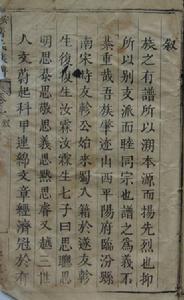 敘
族之有譜所以溯本源而揚先烈也抑
所以别支派而睦同宗也譜之爲義不
綦重哉吾族肇迹山西平陽府臨汾縣
南宋時友軫公始來蜀入籍於遂友軫
生復
生汝霖汝霖生七子曰思聰思
明思恭思敬思義思熙思睿又越三世
人文蔚起科甲連綿文章經濟冠於有